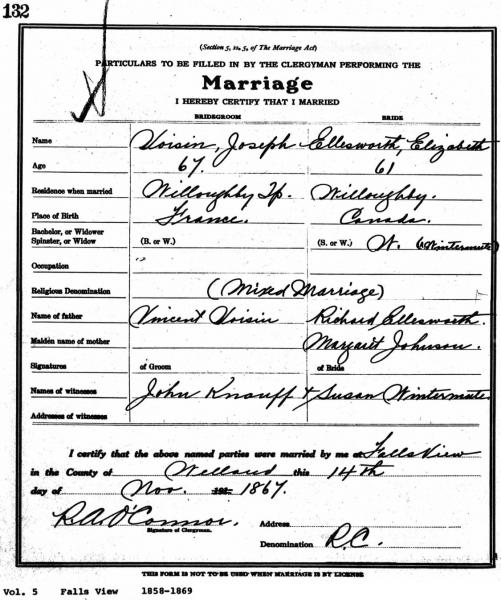 132
(Section 5, ss. 5, of The Marriage Act)
PARTICULARS TO BE FILLED IN BY THE CLERGYMAN PERFORMING THE
Marriage
I HEREBY CERTIFY THAT I MARRIED
BRIDEGROOM BRIDE
Name Voisin, Joseph Ellesworth, Elizabeth
Age 67. 61
Residence when married Willoughby Tp. Willoughby.
Place of Birth France. Canada.
Bachelor, or Widower
Spinster, or Widow (B. or W.) (S. or W.) W. (Wintermute)
Occupation
Religious Denomination (Mixed Marriage)
Name of father Vincent Voisin Richard Ellesworth.
Maiden name of mother Margaret Johnson.
Signatures of Groom of Bride
Names of witnesses John Knauff & Susan Wintermute
Addresses of witnesses
I certify that the above named parties were married by me at Falls View
in the County of Welland this 14th
day of Nov. 1867.
R.A. O'Connor. Address
Signature of Clergyman.
Denomination R.C.
THIS FORM IS NOT TO BE USED WHEN MARRIAGE IS BY LICENSE
Vol. 5 Falls View 1858-1869